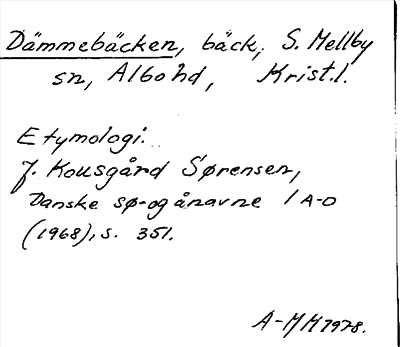 Dämmebäcken, bäck, S. Mellby
sn, Albo hd, Krist. l.
Etymologi.
J. Kousgård Sørensen,
Danske sø- og ånavne 1 A-D
(1968), s. 351.
A-MM 1978.